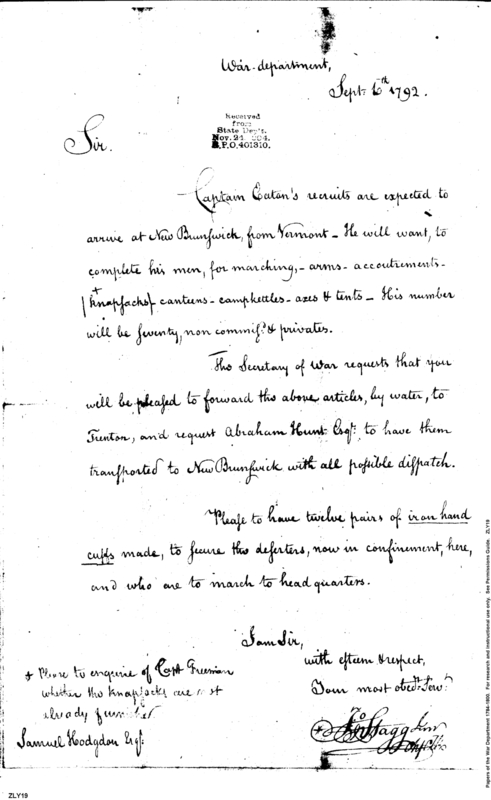 War-department,
Sept: 6th 1792.
Received
from
State Dep't.
Nov. 24
A.P.O. 401310.
Sir.
Captain Eaton's recruits are expected to
arrive at New Brunſwick, from Vermont - He will want, to
complete his men, for marching, - arms - accoutrements -
+
|knapſacks| - canteens - campkettles - axes & tents - His number
will be ſeventy, non commiſs.d & privates.
The Secretary of War requests that you
will be pleaſed to forward the above articles, by water, to
Trenton, and request Abraham Hunt Esqr. to have them
tranſported to New Brunſwick with all poſſible diſpatch.
Pleaſe to have twelve pairs of iron hand
cuffs made, to ſecure the deſerters, now in confinement, here,
and who are to march to head quarters.
I am Sir,
with eſteem & reſpect,
Your most obedt. Servt.
Jno Stagg Junr
+ Pleaſe to enquire of Capt Freeman
whether the knapſacks are not
already furniſhed
Samuel Hodgdon Esqr.
ZLY19
Papers of the War Department 1784-1800. For research and instructional use only. See Permissions Guide. ZLY19